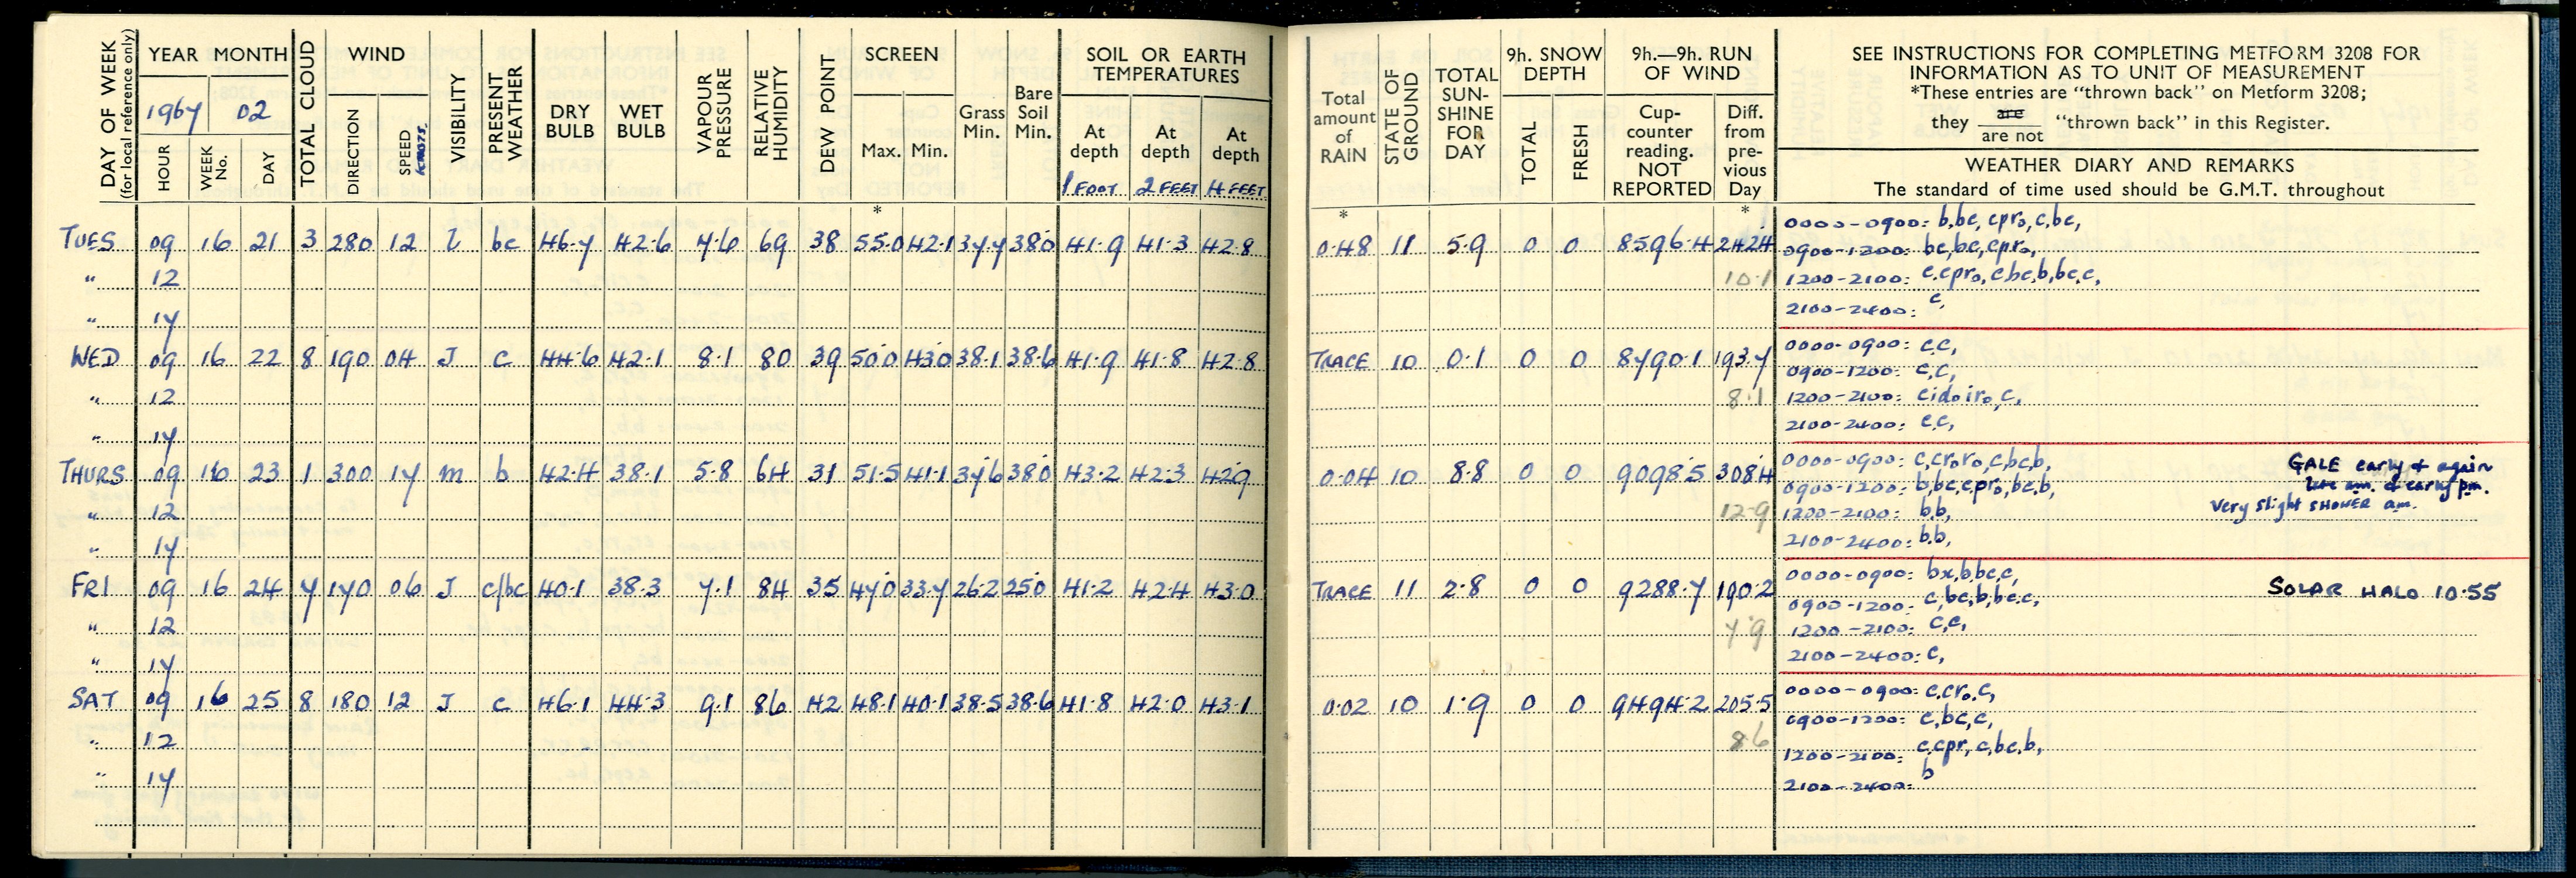 DAY OF WEEK
(for local reference only)
YEAR MONTH
1967 02
HOUR
WEEK No.
DAY
TOTAL CLOUD
WIND
DIRECTION
SPEED
KNOTS.
VISIBILITY
PRESENT WEATHER
DRY BULB
WET BULB
VAPOUR PRESSURE
RELATIVE HUMIDITY
DEW POINT
SCREEN
Max. Min.
*
Grass Min.
Bare Soil Min.
SOIL OR EARTH TEMPERATURES
At depth
1 FOOT
At depth
2 FEET
At depth
4 FEET
Total amount of RAIN
*
STATE OF GROUND
TOTAL SUN-SHINE FOR DAY
9h. SNOW DEPTH
TOTAL
FRESH
9h.—9h. RUN OF WIND
Cup-counter reading. NOT REPORTED
Diff. from pre-vious Day
*
SEE INSTRUCTIONS FOR COMPLETING METFORM 3208 FOR
INFORMATION AS TO UNIT OF MEASUREMENT
*These entries are “thrown back” on Metform 3208;
they are / are not “thrown back” in this Register.
WEATHER DIARY AND REMARKS
The standard of time used should be G.M.T. throughout
TUES 09 16 21 3 280 12 l bc 46.7 42.6 7.6 69 38 55.0 42.1 37.7 38.0 41.9 41.3 42.8 0.48 11 5.9 0 0 8596.4 242.4
0000-0900: b,bc, cpr₀, c,bc,
0900-1200: bc,bc,cpr₀,
" 12 10.1 1200-2100: c,cpr₀,cbc,b,bc,c,
" 17 2100-2400: c,
WED 09 16 22 8 190 04 J c 44.6 42.1 8.1 80 39 50.0 43.0 38.1 38.6 41.9 41.8 42.8 TRACE 10 0.1 0 0 8790.1 193.7
0000-0900: c,c,
0900-1200: c,c,
" 12 8.1 1200-2100: cid₀ir₀,c,
" 17 2100-2400: c,c,
THURS 09 16 23 1 300 17 m b 42.4 38.1 5.8 64 31 51.5 41.1 37.6 38.0 43.2 42.3 42.9 0.04 10 8.8 0 0 9098.5 308.4
0000-0900: c,cr₀r₀,c,bc,b, GALE early & again
0900-1200: b,bc,cpr₀,bc,b, late am. & early pm.
Very slight SHOWER am.
" 12 12.9 1200-2100: b,b,
" 17 2100-2400: b,b,
FRI 09 16 24 7 170 06 J c/bc 40.1 38.3 7.1 84 35 47.0 33.7 26.2 25.0 41.2 42.4 43.0 TRACE 11 2.8 0 0 9288.7 190.2
0000-0900: bx,b,bc,c,
0900-1200: c,bc,b,bc,c, SOLAR HALO 10.55
" 12 7.9 1200-2100: c,c,
" 17 2100-2400: c,
SAT 09 16 25 8 180 12 J c 46.1 44.3 9.1 86 42 48.1 40.1 38.5 38.6 41.8 42.0 43.1 0.02 10 1.9 0 0 9494.2 205.5
0000-0900: c,cr₀,c,
0900-1200: c,bc,c,
" 12 8.6 1200-2100: c,cpr, c,bc,b,
" 17 2100-2400: b